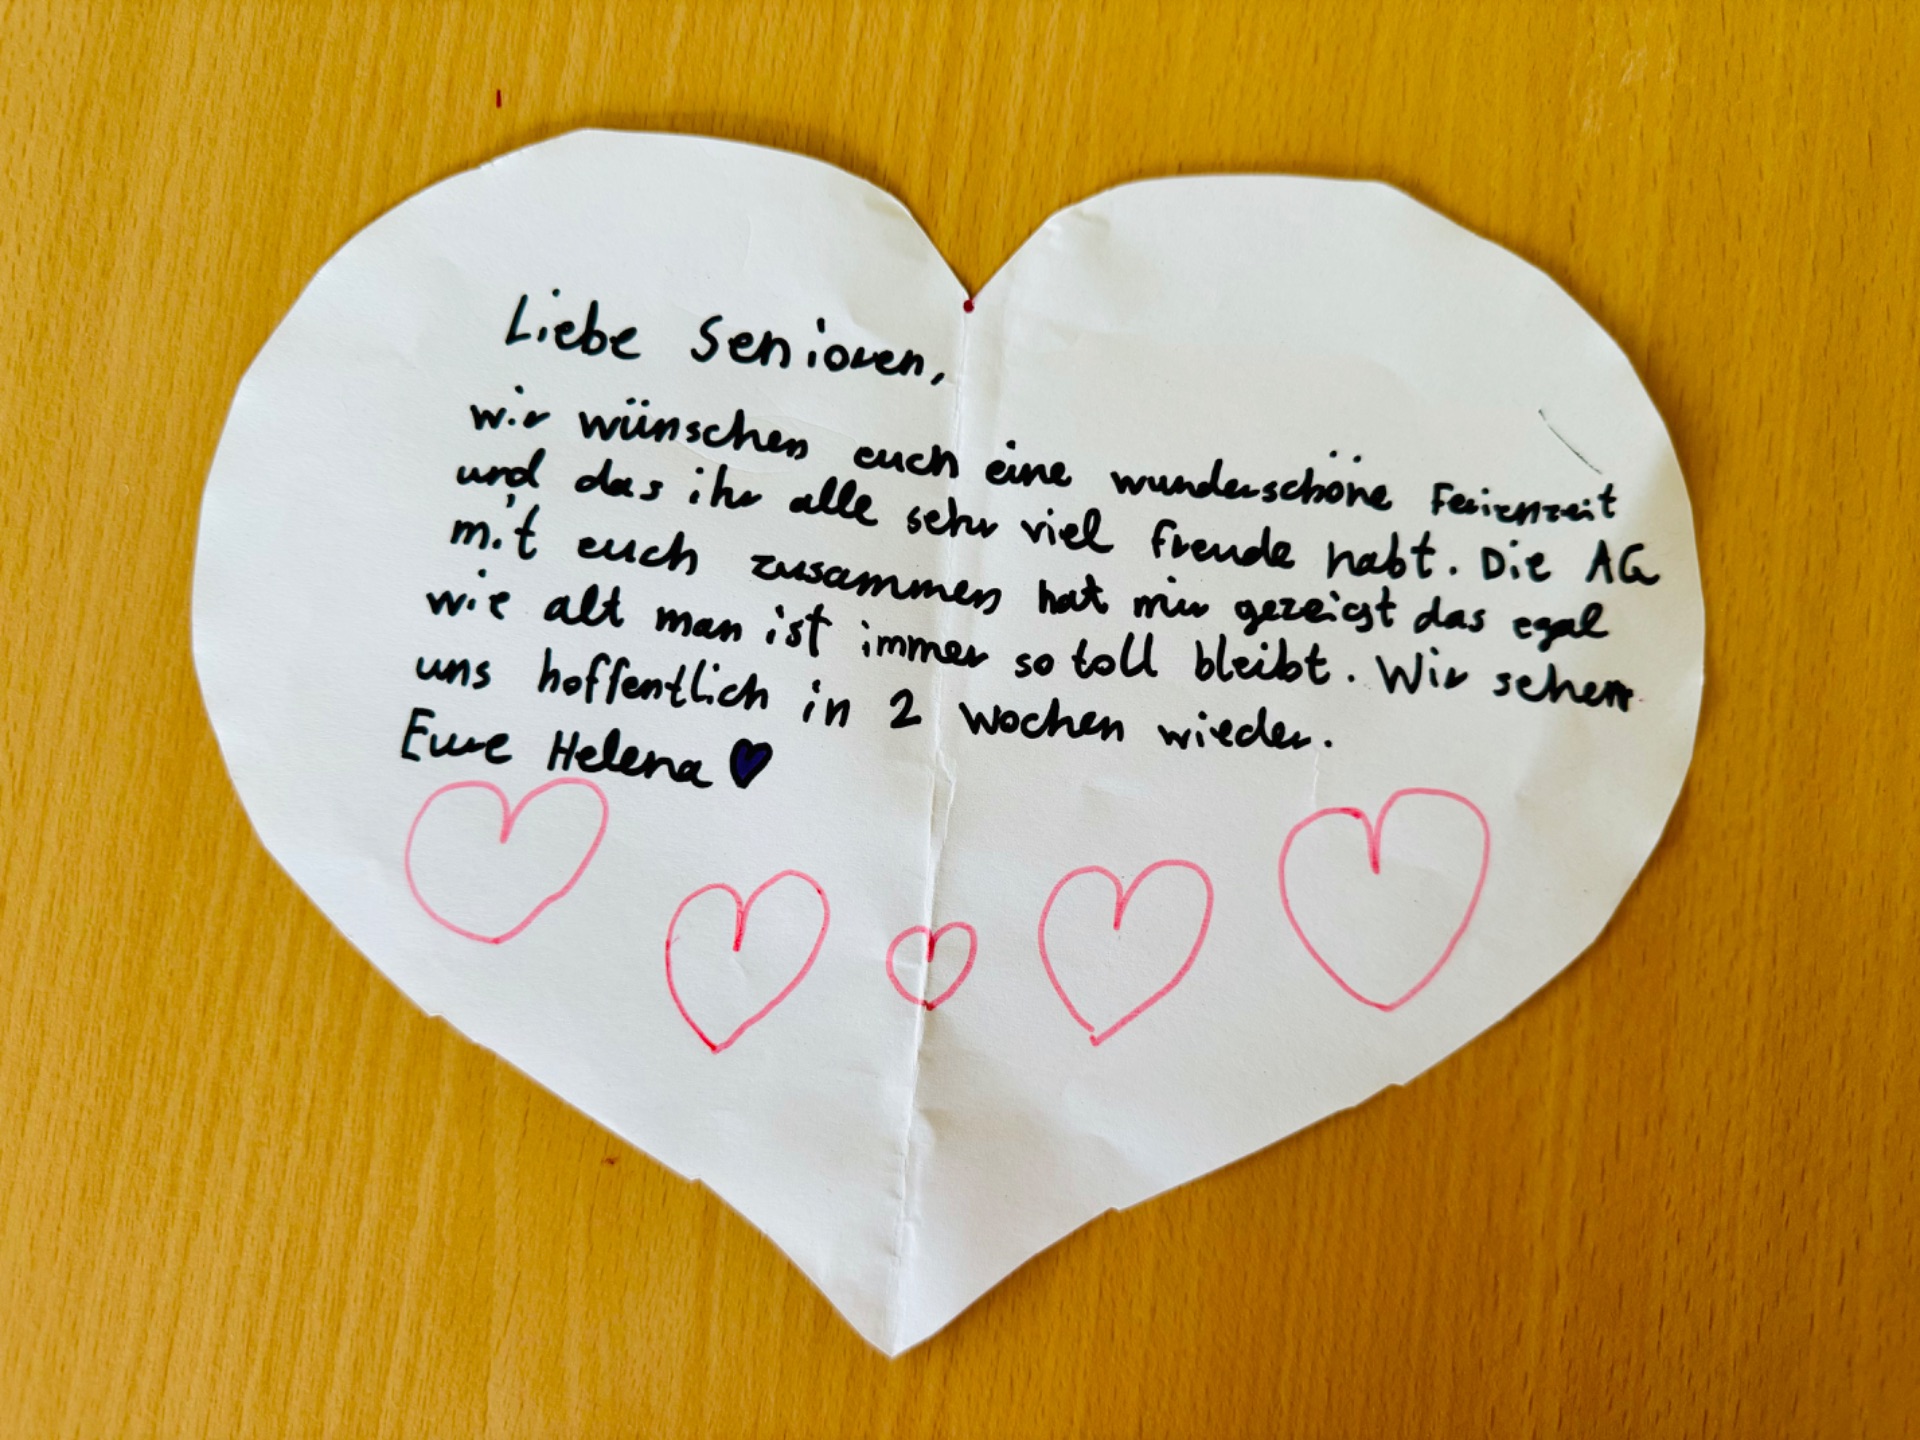 Liebe Senioren,
wir wünschen euch eine wunderschöne Ferienzeit
und das ihr alle sehr viel Freude habt. Die AG
mit euch zusammen hat mir gezeigt das egal
wie alt man ist immer so toll bleibt. Wir sehen
uns hoffentlich in 2 Wochen wieder.
Eure Helena